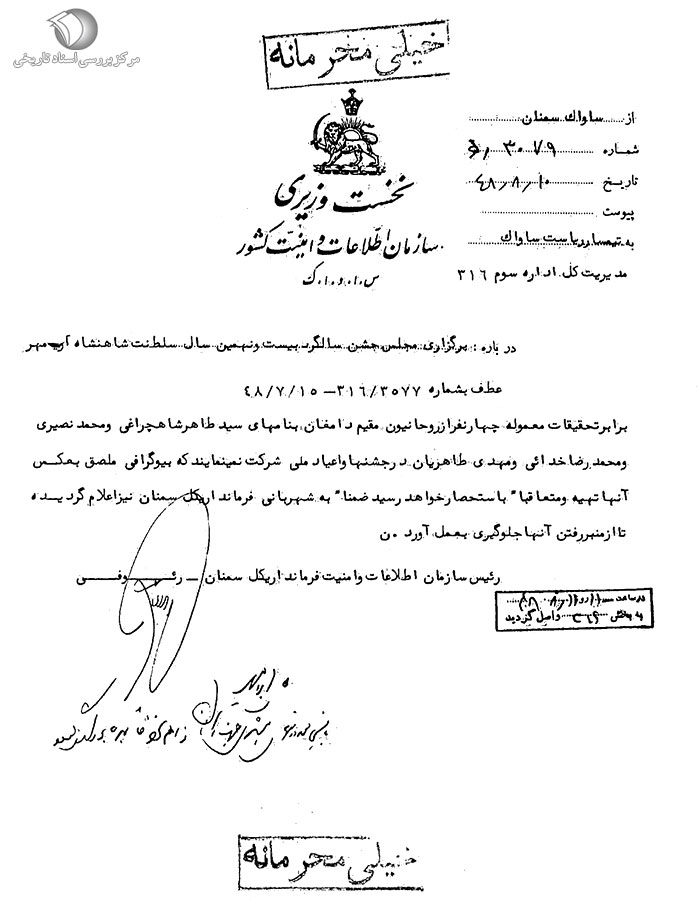 مرکز بررسی اسناد تاریخی
خیلی محرمانه
از ساواک سمنان
شماره ۳۰۷۹/
تاریخ ۴۸/۸/۱۰
پیوست
به تیمسار ریاست ساواک
مدیریت کل اداره سوم ۳۱۶
نخست وزیری
سازمان اطلاعات و امنیت کشور
س.ا.و.ا.ک
درباره : برگزاری مجلس جشن سالگرد بیست ونهمین سال سلطنت شاهنشاه آریامهر
عطف بشماره ۳۱۶/۳۵۷۷ – ۴۸/۷/۱۵
برابر تحقیقات معموله چهار نفر از روحانیون مقیم دامغان بنامهای سید طاهر شاهچراغی ومحمد نصیری
ومحمد رضا خدائی ومهدی طاهریان در جشنها واعیاد ملی شرکت نمینمایند که بیوگرافی ملصق بعکس
آنها تهیه ومتعاقبا" باستحضار خواهد رسید ضمنا" به شهربانی فرمانداریکل سمنان نیز اعلام گردیده
تا از منبر رفتن آنها جلوگیری بعمل آورد .ن
رئیس سازمان اطلاعات وامنیت فرمانداریکل سمنان – رئوفی
در ساعت
به بخش ۳۱۶ واصل گردید
خیلی محرمانه